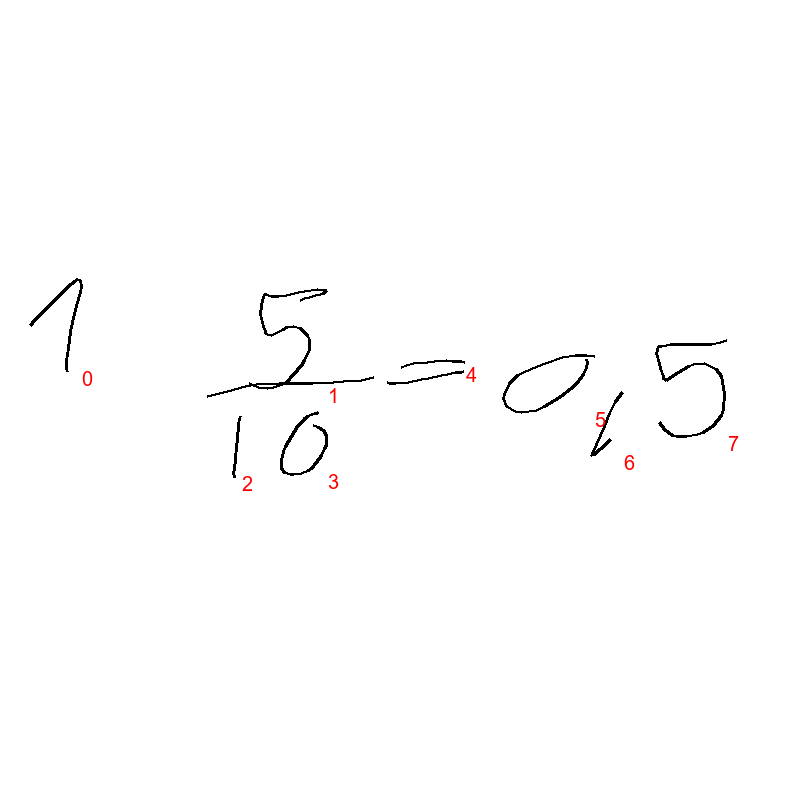 1 5/10 = 0,5
0 1 2 3 4 5 6 7